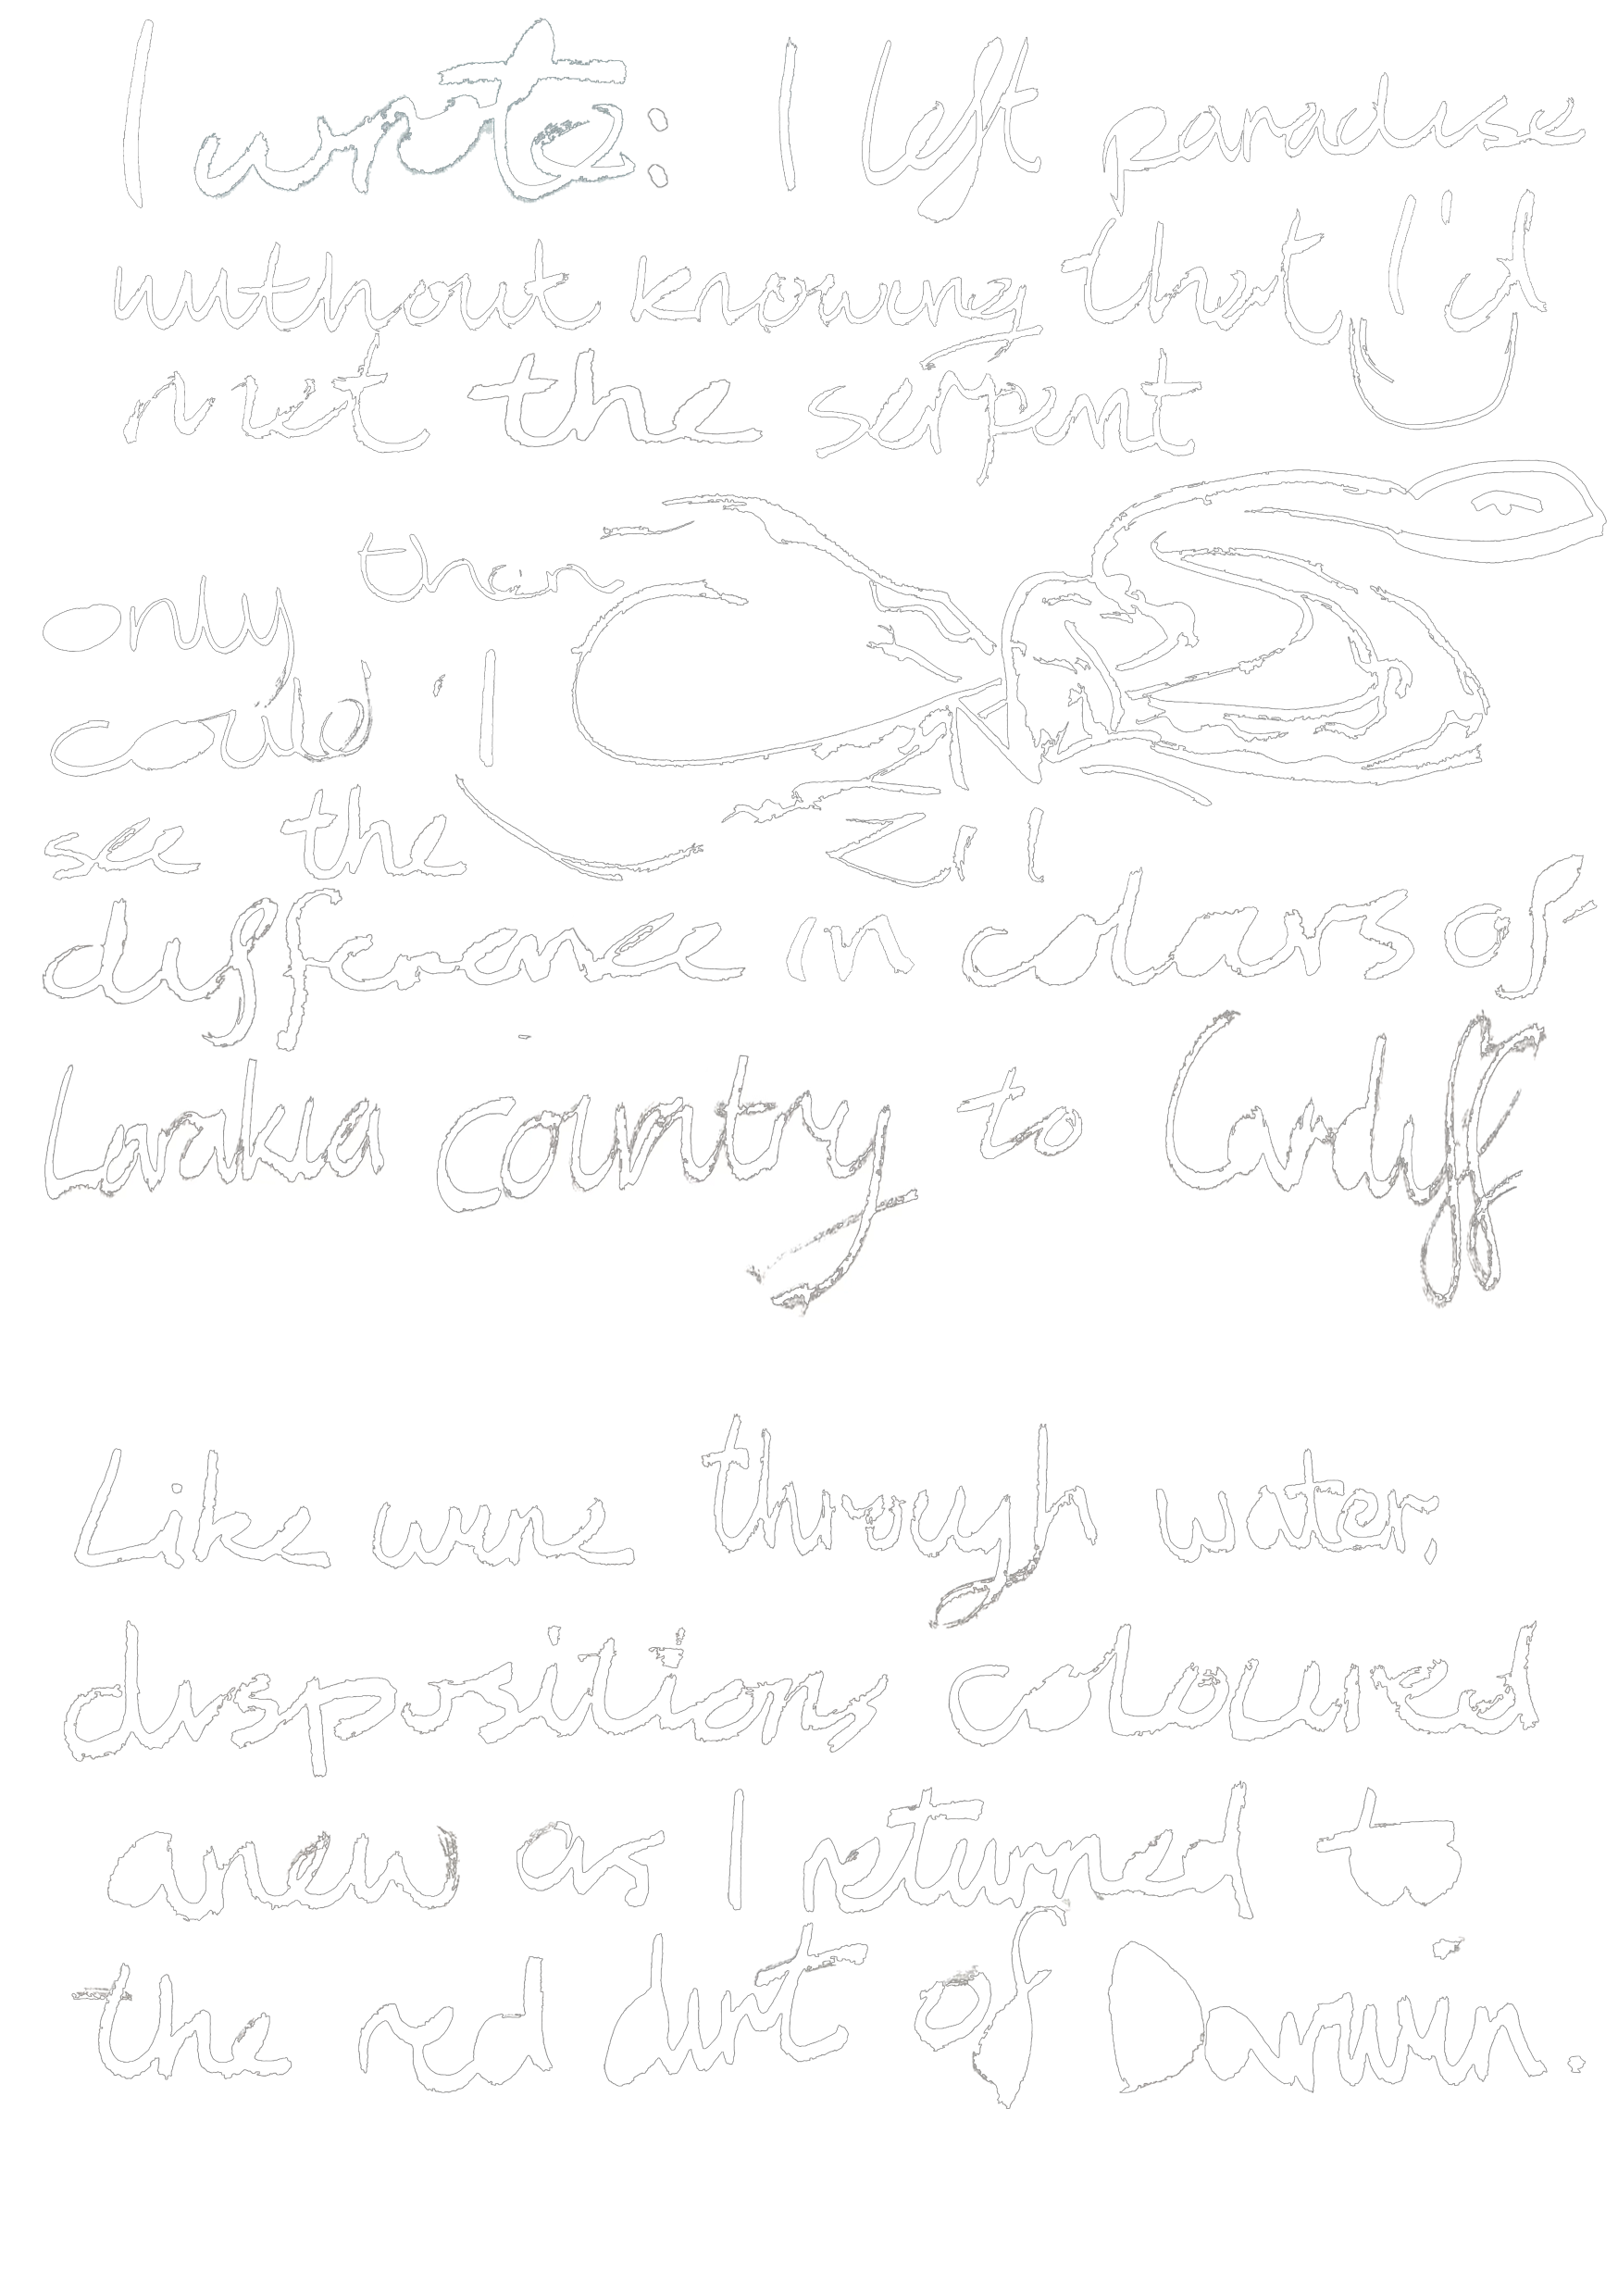 I wrote: I left paradise
without knowing that I'd
met the serpent
only then
could I
see the
difference in colours of
Larrakia country to Cardiff
Like wine through water,
dispositions coloured
anew as I returned to
the red dirt of Darwin.